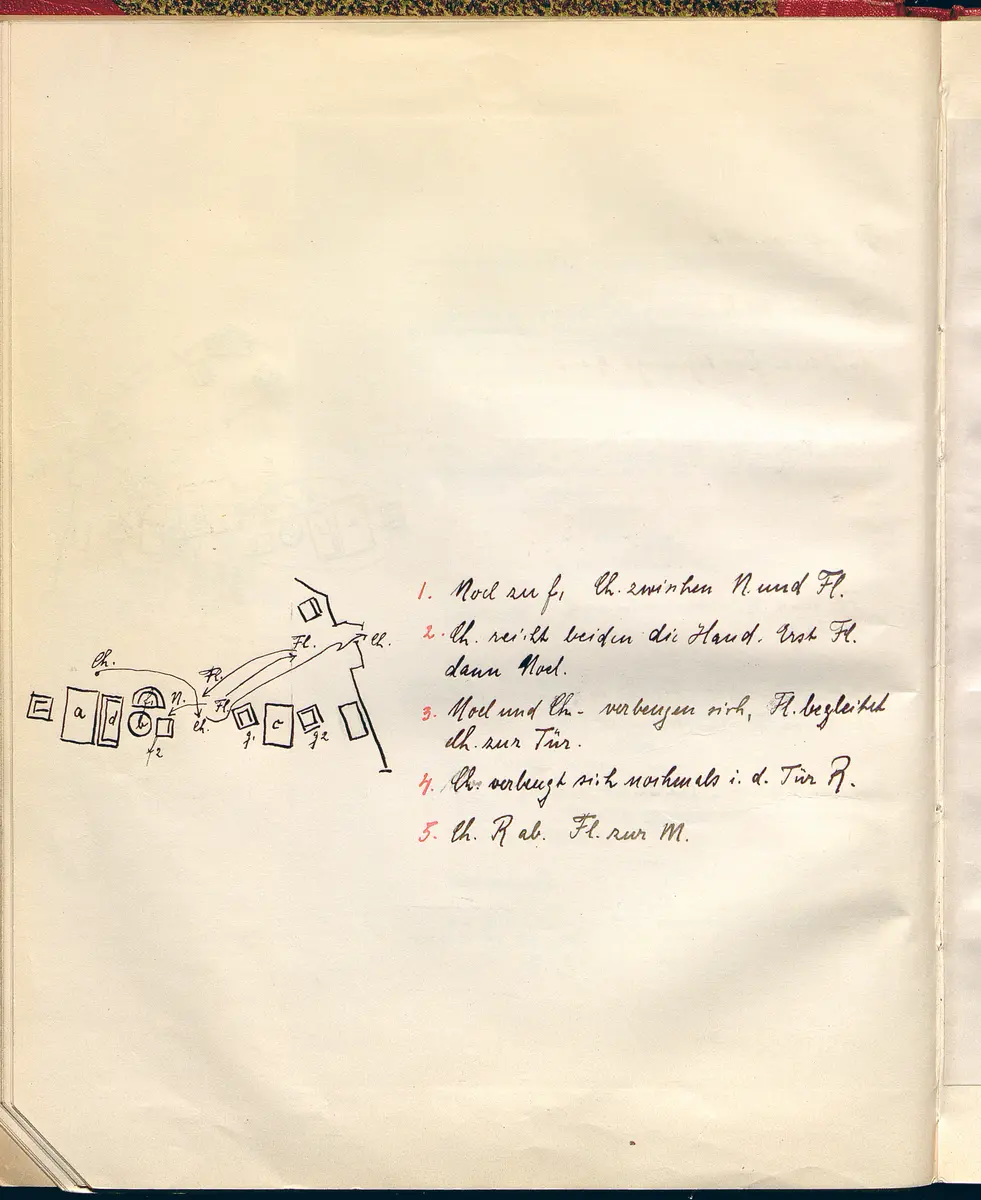 Fl.
Ch.
Ch.
Fl.
N.
Fl.
Ch.
a
d
f1
b
f2
g1
c
g2
1. Noel zu f1 Ch. zwischen N. und Fl.
2. Ch. reicht beiden die Hand. Erst Fl.
dann Noel.
3. Noel und Ch. verbeugen sich, Fl. begleitet
Ch. zur Tür.
4. Ch. verbeugt sich nochmals i. d. Tür R.
5. Ch. R ab. Fl. zur M.